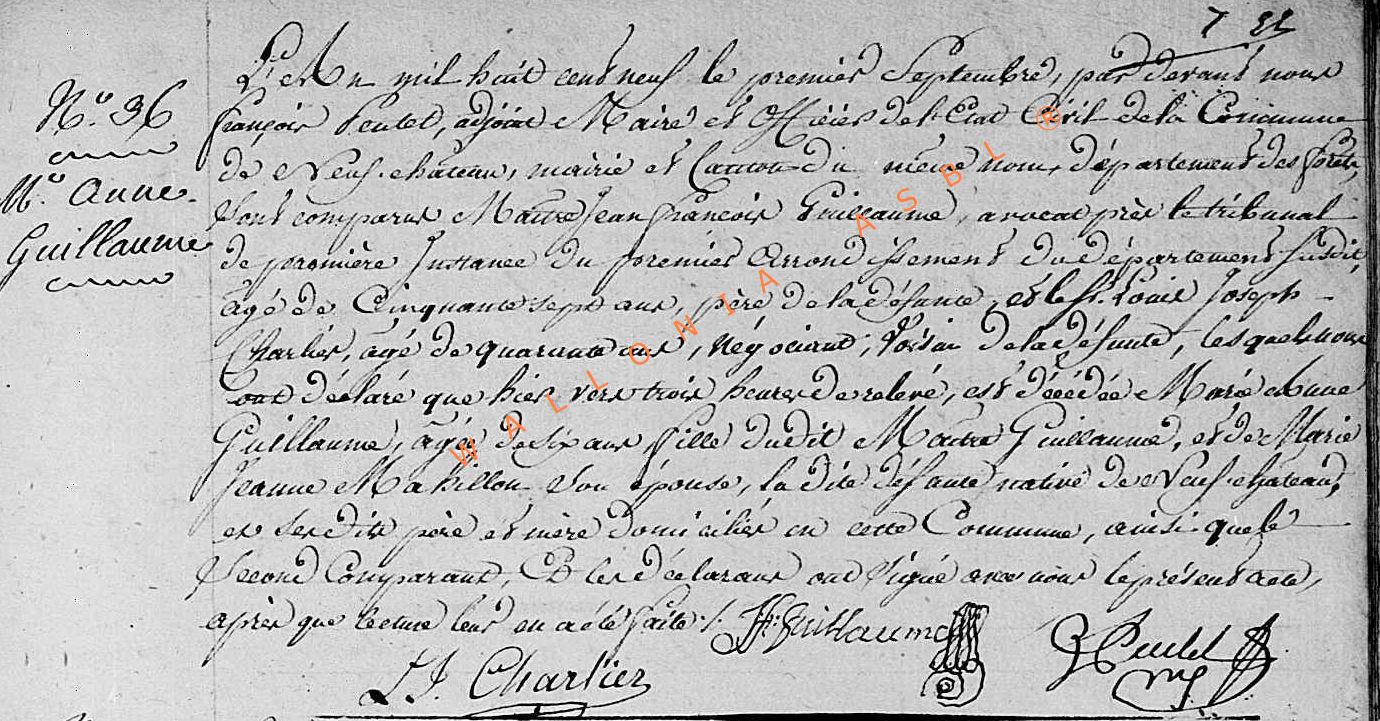 7 
N.º 36
M.e Anne
Guillaume
L'an mil huit cent neuf le premier Septembre, par devant nous
françois Peutet, adjoint Maire et Officier de l'Etat Civil de la Commune
de Neuf-chateau, mairie et Canton du même nom, département des forêts,
sont comparus Maitre Jean françois Guillaume, avocat près le tribunal
de première Instance du premier Arrondissement du département susdit,
âgé de Cinquante sept ans, père de la défunte, et le Sr. Louis Joseph
Charlier, âgé de quarante ans, négociant, voisin de la défunte, lesquels nous
ont déclaré que hier vers trois heures de relevé, est décédée Marie Anne
Guillaume, âgée de six ans fille dudit Maitre Guillaume, et de Marie
Jeanne Mahillon son épouse, la dite défunte native de Neuf-chateau,
et ses dits père et mère domiciliés en cette Commune, ainsi que le
second Comparant, Et les déclarans ont signé avec nous le présent acte,
après que lecture leur en a été faite ./.
JF: Guillaume
L J. Charlier
WALLONIA ASBL ®